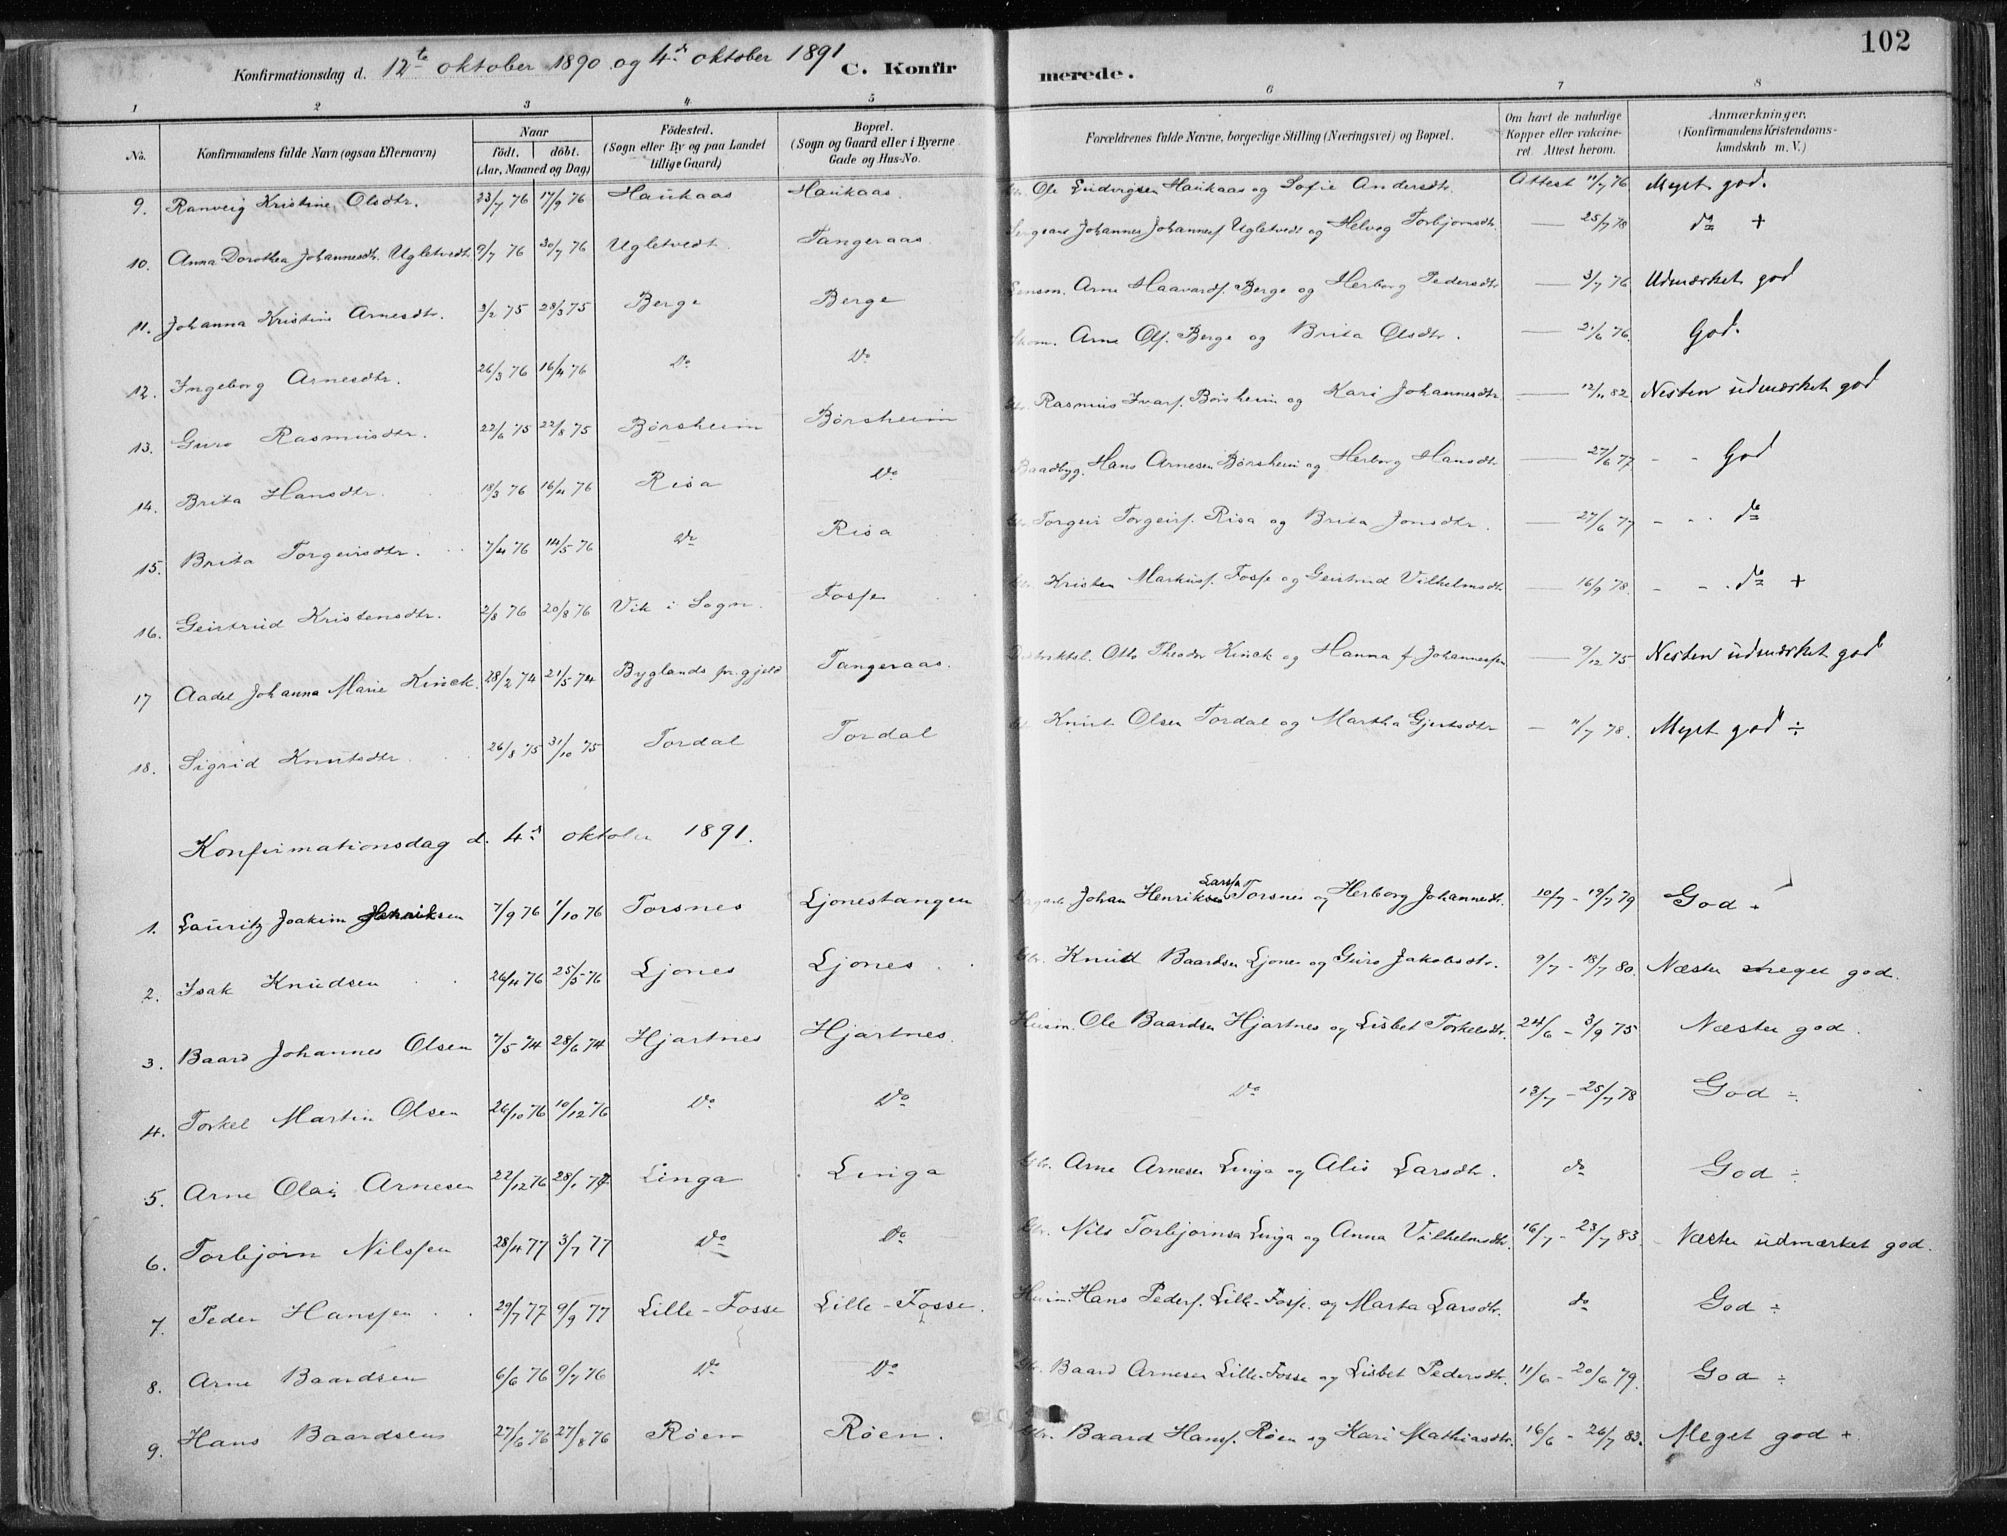 102
Konfirmationsdag d. 12te oktober 1890 og 4de oktober 1891 C. Konfirmerede.
1 2 3 4 5 6 7 8
No. Konfirmandens fulde Navn (ogsaa Efternavn) Naar födt. döbt. (Aar, Maaned og Dag) Födested. (Sogn eller By og paa Landet tillige Gaard) Bopæl. (Sogn og Gaard eller i Byerne Gade og Hus-No. Forældrenes fulde Navne, borgerlige Stilling (Næringsvei) og Bopæl. Om havt de naturlige Kopper eller vakcineret. Attest herom. Anmærkninger, (Konfirmandens Kristendomskundskab m. V.)
9. Ranveig Kristine Olsdtr. 23/7 76 17/9 76 Haukaas Haukaas Ole Ludvigsen Haukaas og Sofie Andersdtr. Attest 11/7 76 Myet god.
10. Anna Dorothea Johannesdtr. Ugletvedt 9/7 76 30/7 76 Ugletvedt Tangeraas Johannes Johannesf. Ugletvedt og Helvog Torbjornsdtr. — 25/7 78 do +
11. Johanna Kristine Arnesdtr. 2/2 75 28/3 75 Berge Berge Lensm. Arne Haavardf. Berge og Herborg Pedersdtr — 3/7 76 Udmærket god
12. Ingeborg Arnesdtr. 26/3 76 16/4 76 Do Do Arne Olf. Berge og Brita Olsdtr. — 21/6 76. God.
13. Guro Rasmusdtr. 22/6 75 22/8 75 Børsheim Børsheim Rasmus Ivarf. Børsheim og Kari Johannesdtr — 12/11 82 Nesten udmærket god
14. Brita Hansdtr. 18/3 76 16/4 76 Risa Do Baadbyg. Hans Arnesen Børsheim og Herborg Hansdtr — 27/6 77 - - God
15. Brita Torgeirsdtr. 7/4 76 14/5 76 Do Risa Torgeir Torgeirf. Risa og Brita Jonsdtr. — 27/6 77 - - do
16. Geirtrud Kristensdtr. 2/8 76 20/8 76 Vik i Sogn. Fosse Kristen Markusf. Fosse og Geirtrud Vilhelmsdtr. — 16/9 78. - - do +
17 Aadel Johanna Marie Kinck. 28/2 74 21/5 74 Byglands pr.gjeld Tangeraas. Distriktsl. Otto Theodor Kinck og Hanna f. Johannessen — 9/12 75 Nesten udmærket god
18. Sigrid Knutsdtr. 26/8 75 31/10 75 Tordal Tordal Knut Olsen Tordal og Martha Gjertsdtr — 11/7 78. Myet god ÷
Konfirmationsdag d. 4de oktober 1891.
1. Lauritz Joakim Henriksen 7/9 76 1/10 76 Torsnes Ljonestangen Johan Henriksen Larssen Torsnes og Herborg Johannesdtr. 10/7 - 19/7 79 God +
2. Isak Knudsen 26/4 76 25/5 76 Ljones Ljones Gbr. Knud Baardsen Ljones og Guro Jakobsdtr. 9/7 - 18/7 80. Næsten meget god.
3. Baard Johannes Olsen 7/5 74 28/6 74 Hjartnes Hjartnes. Husm. Ole Baardsen Hjartnes og Lisbet Torkelsdtr. 24/6 - 3/9 75 Næsten god.
4. Torkel Martin Olsen 26/10 76 10/12 76 Do Do Do 13/7 - 25/7 78 God ÷
5. Arne Olai Arnesen 22/12 76 28/1 77 Linga Linga Gbr. Arne Arnesen Linga og Alis Larsdtr. do God ÷
6. Torbjørn Nilssen 28/4 77 3/7 77 Do Do Gbr. Nils Torbjornsen Linga og Anna Vilhelmsdtr. 16/7 - 23/7 83. Næsten udmærket god.
7. Peder Hanssen 29/7 77 9/9 77 Lille-Fosse Lille-Fosse. Husm. Hans Pedersf. Lille-Fosse. og Marta Larsdtr. do God ÷
8. Arne Baardsen 6/6 76 9/7 76 Do Do Gbr. Baard Arnesen Lille-Fosse og Lisbet Pedersdtr. 11/6 - 20/6 79. God ÷
9. Hans Baardsen 27/6 76 27/8 76 Røen Røen. Gbr. Baard Hansf. Røen og Kari Mathiasdtr. 16/6 - 26/7 83. Meget god +